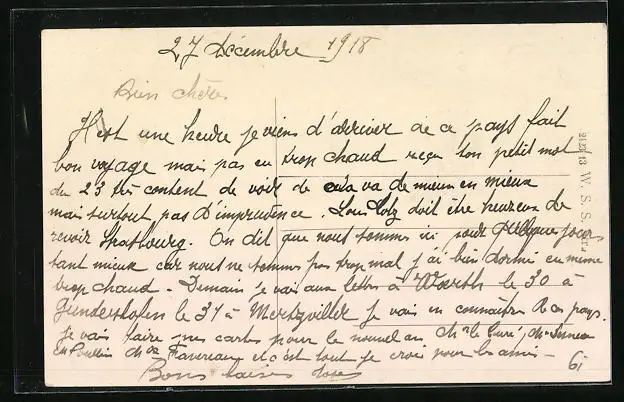 27 Décembre 1918
Bien chères
Il est une heure je viens d'arriver de ce pays fait
bon voyage mais pas eu trop chaud reçu ton petit mot
du 23 très content de voir que cela va de mieux en mieux
mais surtout pas d'imprudence. doit être heureux de
revoir Strasbourg. On dit que nous sommes ici pour quelques jours
tant mieux car nous ne sommes pas trop mal j'ai bien dormi eu même
trop chaud - Demain je vais aux lettres à Woerth le 30 à
Gundershofen le 31 à Mertzviller je vais en connaître de ces pays.
Je vais faire mes cartes pour le nouvel an Mr le Curé,
et c'est tout je crois pour les amis -
Bons baisers
61
W. S. S.